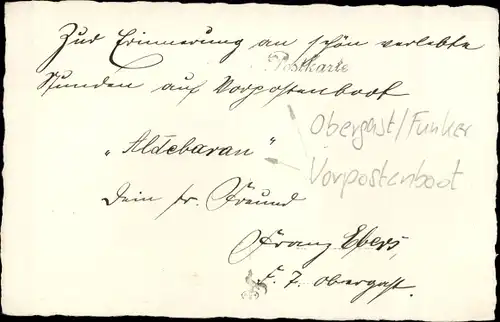 Zur Erinnerung an schön verlebte
Postkarte
Stunden auf Vorpostenboot
Obergast/Funker
„Aldebaran“
Vorpostenboot
Dein fr. Freund
Franz Ebers,
F. T. Obergast.